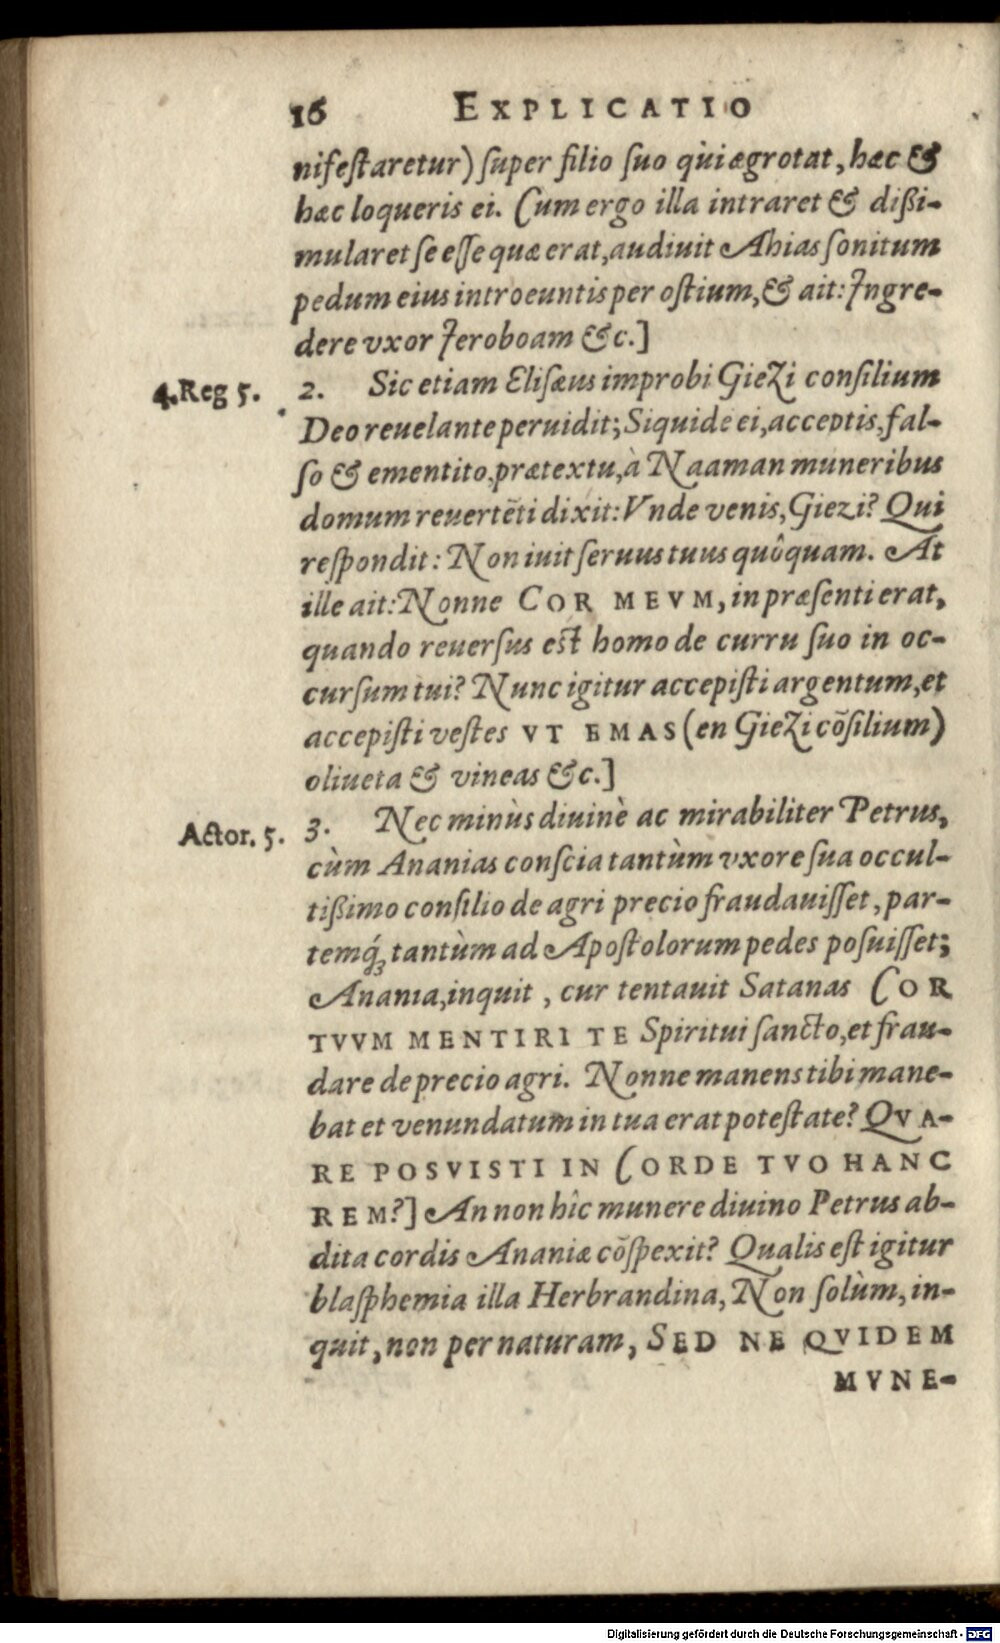 16 EXPLICATIO
nifeſtaretur) ſuper filio ſuo qui ægrotat, hæc &
hæc loqueris ei. Cum ergo illa intraret & dißi-
mularet ſe eſſe quæ erat, audiuit Ahias ſonitum
pedum eius introeuntis per oſtium, & ait: Ingre-
dere vxor Ieroboam &c.]
4. Reg 5. 2. Sic etiam Eliſæus improbi Giezi conſilium
Deo reuelante peruidit; Siquidē ei, acceptis, fal-
ſo & ementito, prætextu, à Naaman muneribus
domum reuertēti dixit: Vnde venis, Giezi? Qui
reſpondit: Non iuit ſeruus tuus quôquam. At
ille ait: Nonne COR MEVM, in præſenti erat,
quando reuerſus eſt homo de curru ſuo in oc-
curſum tui? Nunc igitur accepiſti argentum, et
accepiſti veſtes VT EMAS (en Giezi cōſilium)
oliueta & vineas &c.]
Actor. 5. 3. Nec minùs diuinè ac mirabiliter Petrus,
cùm Ananias conſcia tantùm vxore ſua occul-
tißimo conſilio de agri precio fraudauiſſet, par-
temq́; tantùm ad Apoſtolorum pedes poſuiſſet;
Anania, inquit, cur tentauit Satanas COR
TVVM MENTIRI TE Spiritui ſancto, et frau-
dare de precio agri. Nonne manens tibi mane-
bat et venundatum in tua erat poteſtate? QVA-
RE POSVISTI IN CORDE TVO HANC
REM?] An non hîc munere diuino Petrus ab-
dita cordis Ananiæ cōſpexit? Qualis eſt igitur
blaſphemia illa Herbrandina, Non ſolùm, in-
quit, non per naturam, SED NE QVIDEM
MVNE-
Digitalisierung gefördert durch die Deutsche Forschungsgemeinschaft - DFG